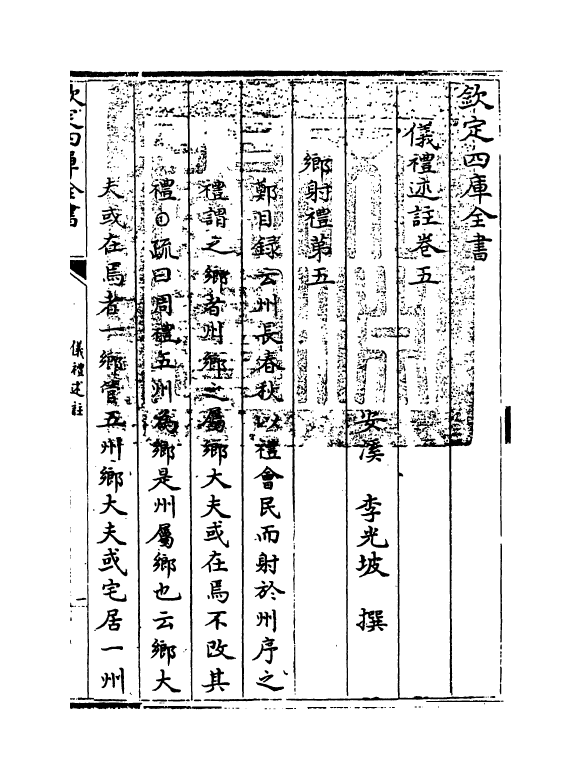 欽定四庫全書
儀禮述註卷五
安溪 李光坡 撰
鄉射禮第五
鄭目録云州長春秋以禮會民而射於州序之
禮謂之鄉者州鄉之屬鄉大夫或在焉不改其
禮○疏曰周禮五州為鄉是州屬鄉也云鄉大
夫或在焉者一鄉管五州鄉大夫或宅居一州
欽定四庫全書
儀禮述註
一